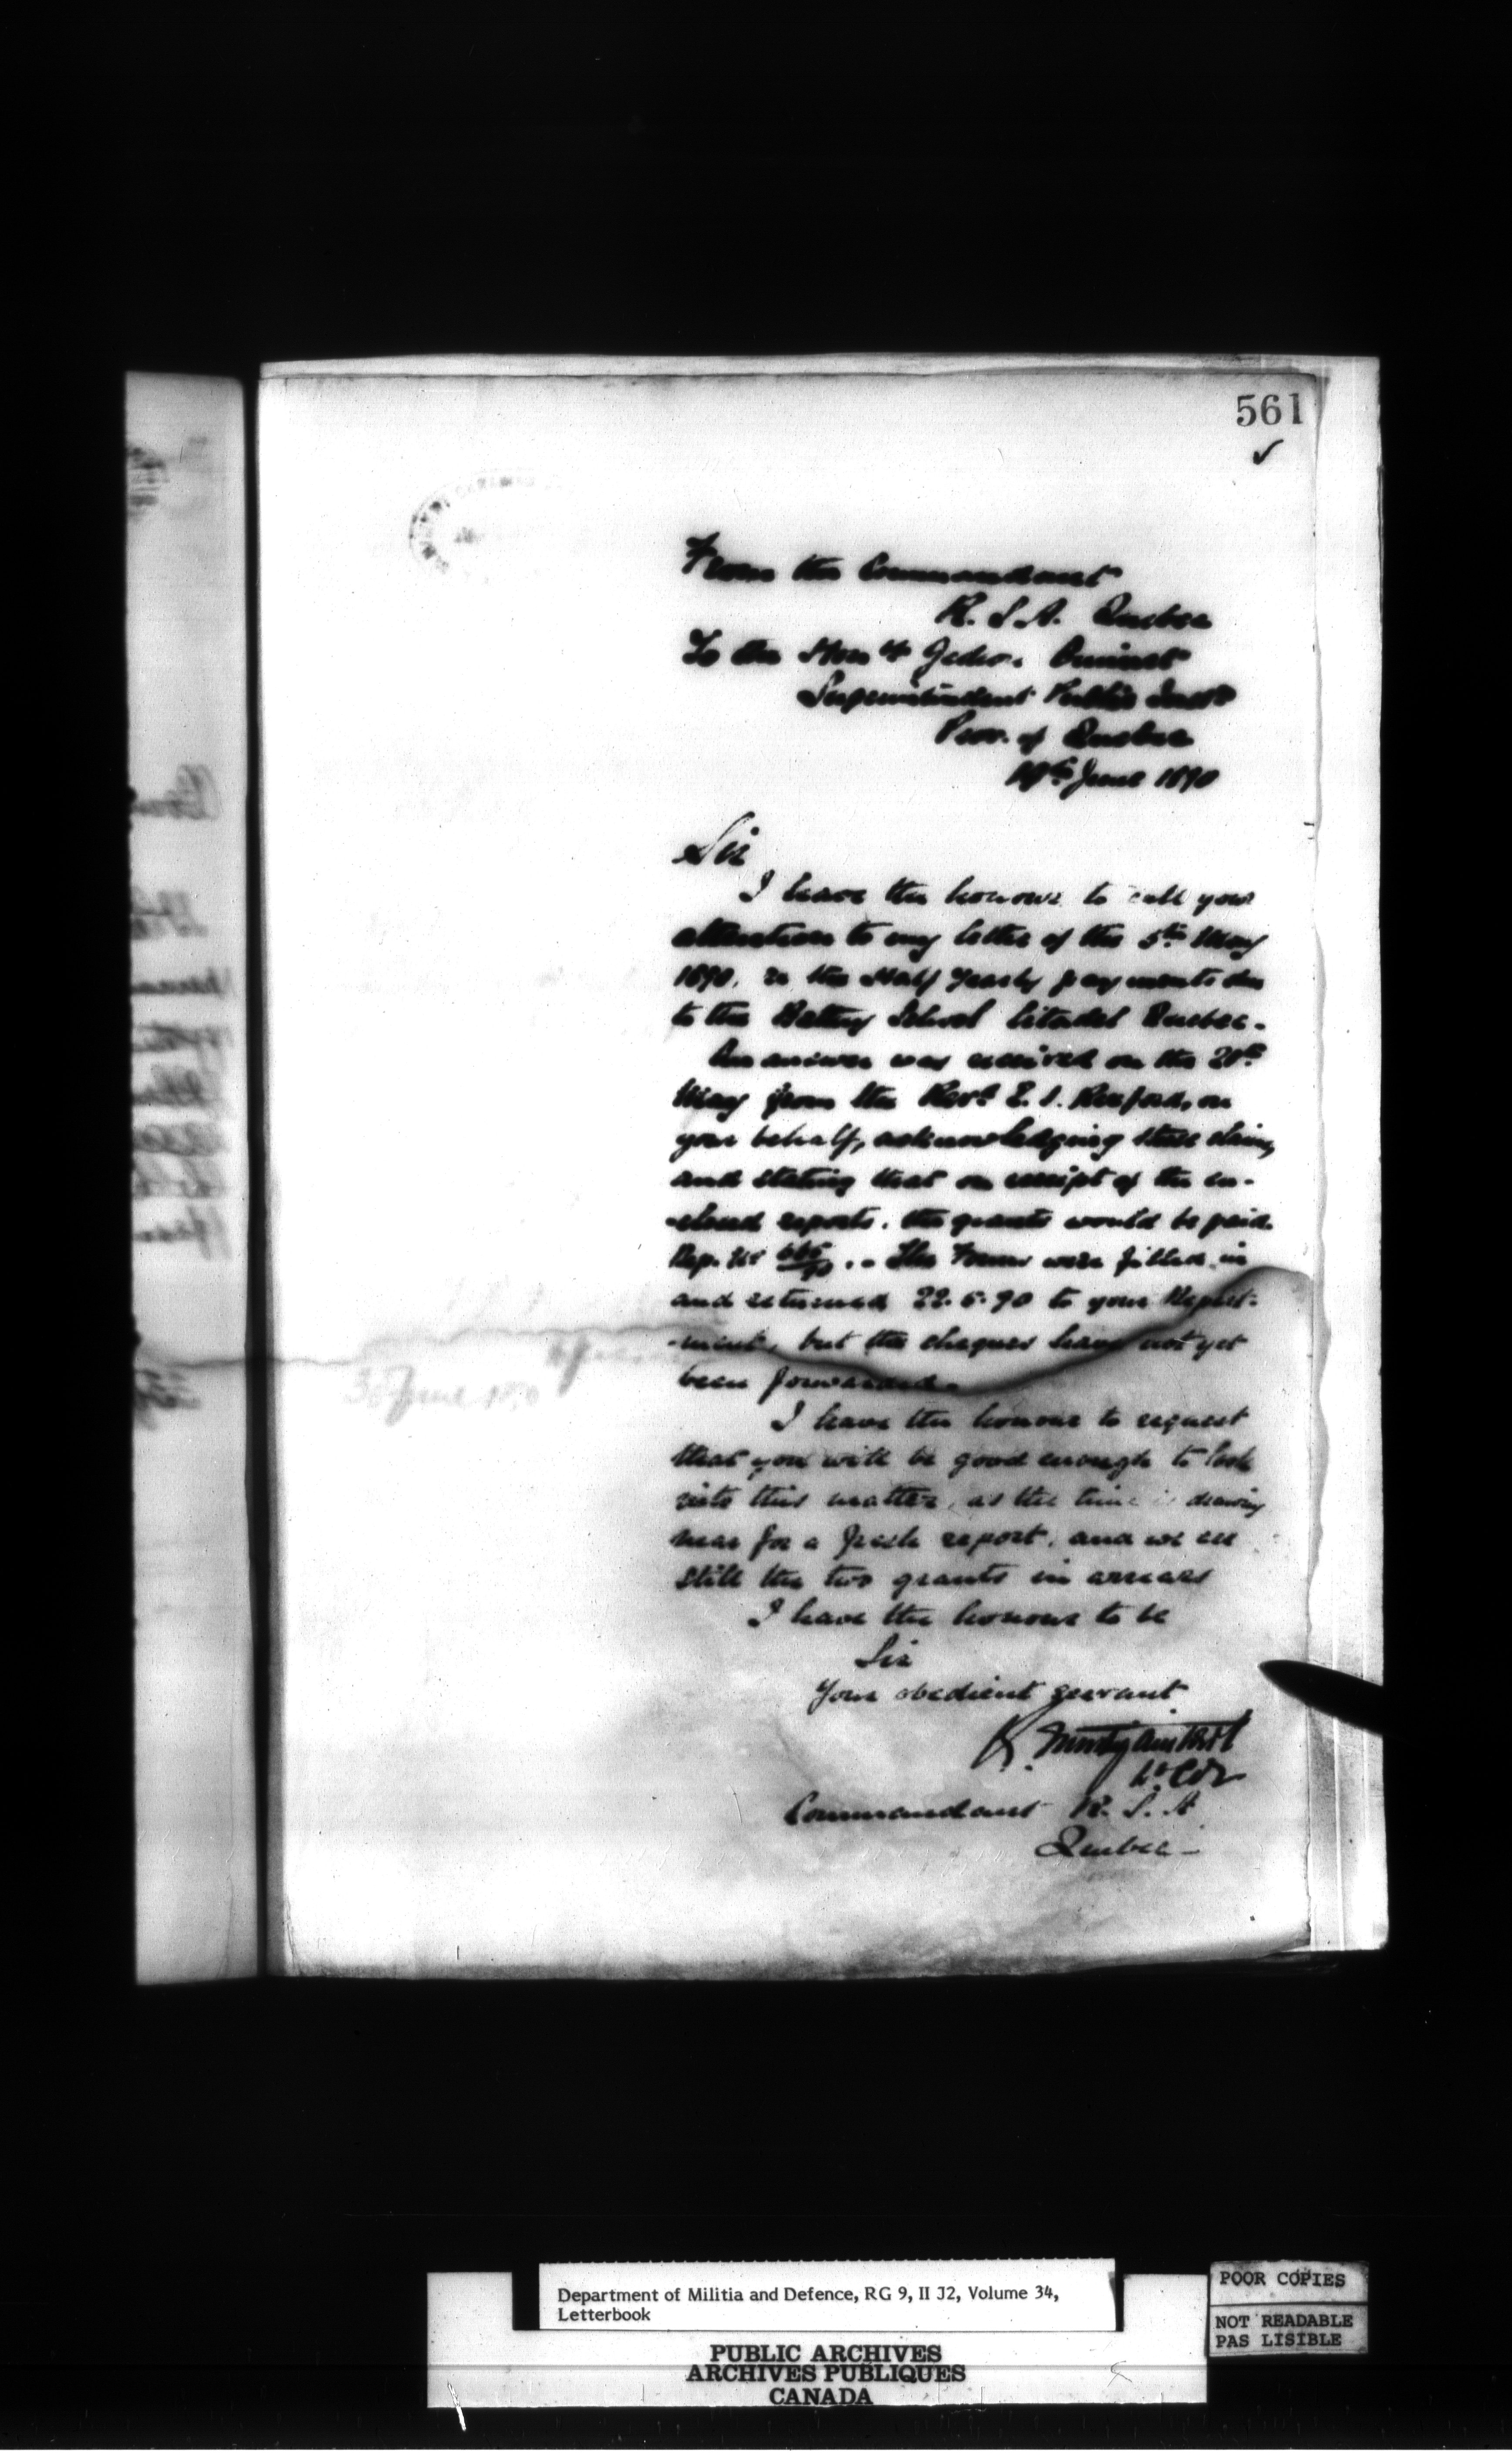 561
From the Commandant
R. S. A. Quebec
To the Honble Gedeon Ouimet
Superintendent Public Inst
Prov. of Quebec
19th June 1890
Sir
I have the honour to call your
attention to my letter of the 5th May
1890, re the Half Yearly payments due
to the Battery School Citadel Quebec.
An answer was received on the 20th
May from the Revd E. I. Rexford, on
your behalf, acknowledging these claims,
and stating that on receipt of the en-
-closed reports, the grants would be paid.
Rep. No 90 .. The Forms were filled in
and returned 22.5.90 to your Depart-
-ment, but the cheques have not yet
been forwarded.
I have the honour to request
that you will be good enough to look
into this matter, as the time is drawing
near for a fresh report, and we are
still the two grants in arrears
I have the honour to be
Sir
Your obedient servant
Lt Col
Commandant R. S. A
Quebec -
30 June 1890
Department of Militia and Defence, RG 9, II J2, Volume 34,
Letterbook
PUBLIC ARCHIVES
ARCHIVES PUBLIQUES
CANADA
POOR COPIES
NOT READABLE
PAS LISIBLE